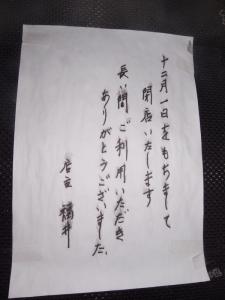 十二月一日をもちまして
閉店いたします
長い間ご利用いただき
ありがとうございました。
店主 福井